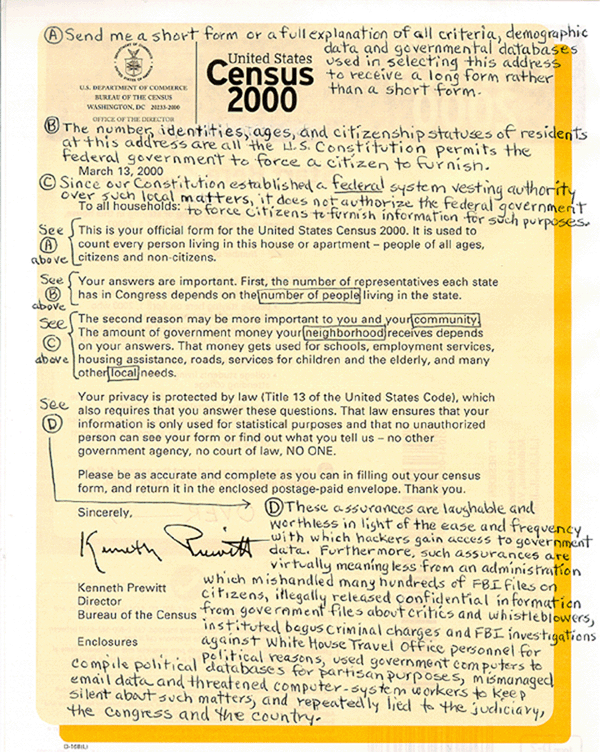 Ⓐ Send me a short form or a full explanation of all criteria, demographic
data and governmental databases
used in selecting this address
to receive a long form rather
than a short form.
U.S. DEPARTMENT OF COMMERCE
BUREAU OF THE CENSUS
WASHINGTON, DC 20233-2000
OFFICE OF THE DIRECTOR
United States
Census
2000
Ⓑ The number, identities, ages, and citizenship statuses of residents
at this address are all the U.S. Constitution permits the
federal government to force a citizen to furnish.
March 13, 2000
Ⓒ Since our Constitution established a federal system vesting authority
over such local matters, it does not authorize the federal government
To all households:
to force citizens to furnish information for such purposes.
See
Ⓐ
above
This is your official form for the United States Census 2000. It is used to
count every person living in this house or apartment – people of all ages,
citizens and non-citizens.
See
Ⓑ
above
Your answers are important. First, the number of representatives each state
has in Congress depends on the number of people living in the state.
See
Ⓒ
above
The second reason may be more important to you and your community.
The amount of government money your neighborhood receives depends
on your answers. That money gets used for schools, employment services,
housing assistance, roads, services for children and the elderly, and many
other local needs.
See
Ⓓ
Your privacy is protected by law (Title 13 of the United States Code), which
also requires that you answer these questions. That law ensures that your
information is only used for statistical purposes and that no unauthorized
person can see your form or find out what you tell us – no other
government agency, no court of law, NO ONE.
Please be as accurate and complete as you can in filling out your census
form, and return it in the enclosed postage-paid envelope. Thank you.
Sincerely,
Kenneth Prewitt
Kenneth Prewitt
Director
Bureau of the Census
Enclosures
Ⓓ These assurances are laughable and
worthless in light of the ease and frequency
with which hackers gain access to government
data. Furthermore, such assurances are
virtually meaningless from an administration
which mishandled many hundreds of FBI files on
citizens, illegally released confidential information
from government files about critics and whistleblowers,
instituted bogus criminal charges and FBI investigations
against White House Travel Office personnel for
political reasons, used government computers to
compile political databases for partisan purposes, mismanaged
email data and threatened computer-system workers to keep
silent about such matters, and repeatedly lied to the judiciary,
the Congress and the country.
D-16B(L)